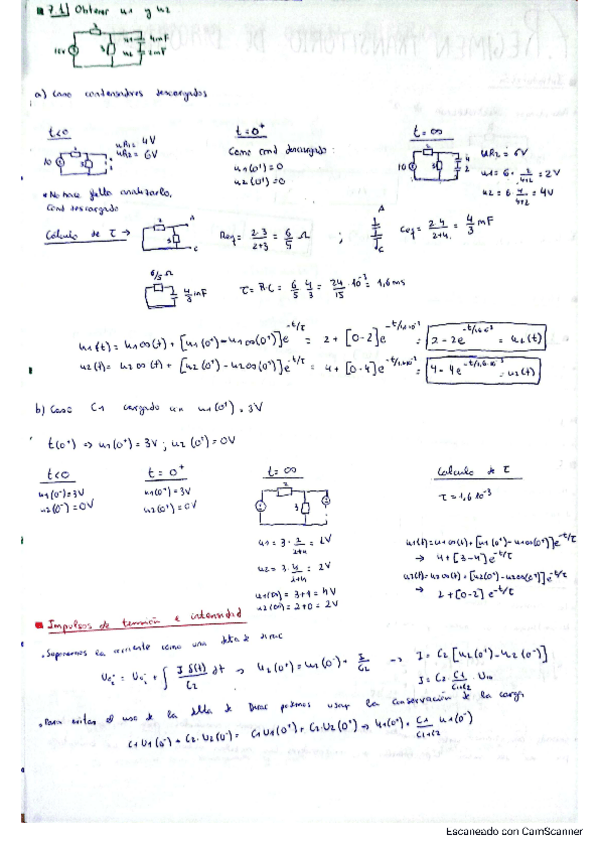 7.1 Obtener u1 y u2
2
10V 3 u1 4mF
u2 2mF
a) Caso condensadores descargados
t<0
uR1= 4V
uR2= 6V
10 2 3
• No hace falta analizarlo,
Cond descargado
t=0⁺
Como cond descargado:
u1(0⁺)=0
u2(0⁺)=0
t=∞
10 2 3 4 2
uR2= 6V
u1= 6· 2/(4+2) = 2V
u2= 6· 4/(4+2) = 4V
Cálculo de τ → 2 3 A C
Req= 2·3/(2+3) = 6/5 Ω ;
A C
Ceq= 2·4/(2+4) = 4/3 mF
6/5 Ω
4/3 mF
τ= R·C= 6/5 · 4/3 = 24/15 ·10⁻³= 1,6ms
u1(t)= u1∞(t)+ [u1(0⁺)-u1∞(0⁺)]e^-t/τ = 2+[0-2]e^-t/1,6·10⁻³ = 2-2e^-t/1,6·10⁻³ = u1(t)
u2(t)= u2∞(t)+ [u2(0⁺)-u2∞(0⁺)]e^-t/τ = 4+[0-4]e^-t/1,6·10⁻³ = 4-4e^-t/1,6·10⁻³ = u2(t)
b) Caso C1 cargado u1(0⁺)=3V
t(0⁺) ⇒ u1(0⁺)=3V ; u2(0⁺)=0V
t<0
u1(0⁻)=3V
u2(0⁻)=0V
t=0⁺
u1(0⁺)=3V
u2(0⁺)=0V
t=∞
2 3
u1= 3· 2/(2+4) = 1V
u2= 3· 4/(2+4) = 2V
u1(∞)= 3+1= 4V
u2(∞)= 2+0= 2V
Calculo de τ
τ=1,6·10⁻³
u1(t)=u1∞(t)+[u1(0⁺)-u1∞(0⁺)]e^-t/τ
→ 4+[3-4]e^-t/τ
u2(t)=u2∞(t)+[u2(0⁺)-u2∞(0⁺)]e^-t/τ
→ 2+[0-2]e^-t/τ
Impulsos de tensión e intensidad
• Suponemos la corriente como una delta de dirac
→ I= C2[u2(0⁺)-u2(0⁻)]
• Para evitar el uso de la delta de Dirac podemos usar la conservación de la carga
C1U1(0⁻)+C2·U2(0⁻)= C1U1(0⁺)+C2·U2(0⁺)
Escaneado con CamScanner